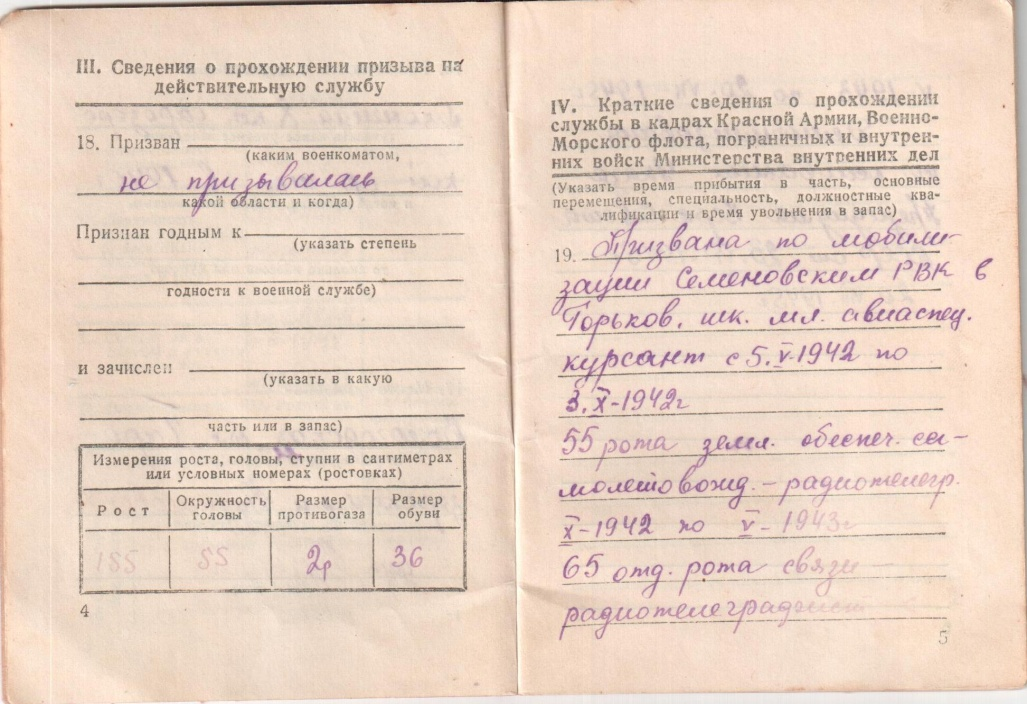 III. Сведения о прохождении призыва на
действительную службу
18. Призван
(каким военкоматом,
не призывалась
какой области и когда)
Признан годным к
(указать степень
годности к военной службе)
и зачислен
(указать в какую
часть или в запас)
Измерения роста, головы, ступни в сантиметрах
или условных номерах (ростовках)
Рост
Окружность
головы
Размер
противогаза
Размер
обуви
155 55 2р 36
4
IV. Краткие сведения о прохождении
службы в кадрах Красной Армии, Военно-
Морского флота, пограничных и внутрен-
них войск Министерства внутренних дел
(Указать время прибытия в часть, основные
перемещения, специальность, должностные ква-
лификации и время увольнения в запас)
19. Призвана по мобили-
зации Семеновским РВК в
Горьков. шк. мл. авиаспец.
курсант с 5.V-1942 по
3.X-1942г
55 рота земл. обеспеч. са-
молетовожд. – радиотелегр.
X-1942 по V-1943г
65 отд. рота связи –
радиотелеграфист
5